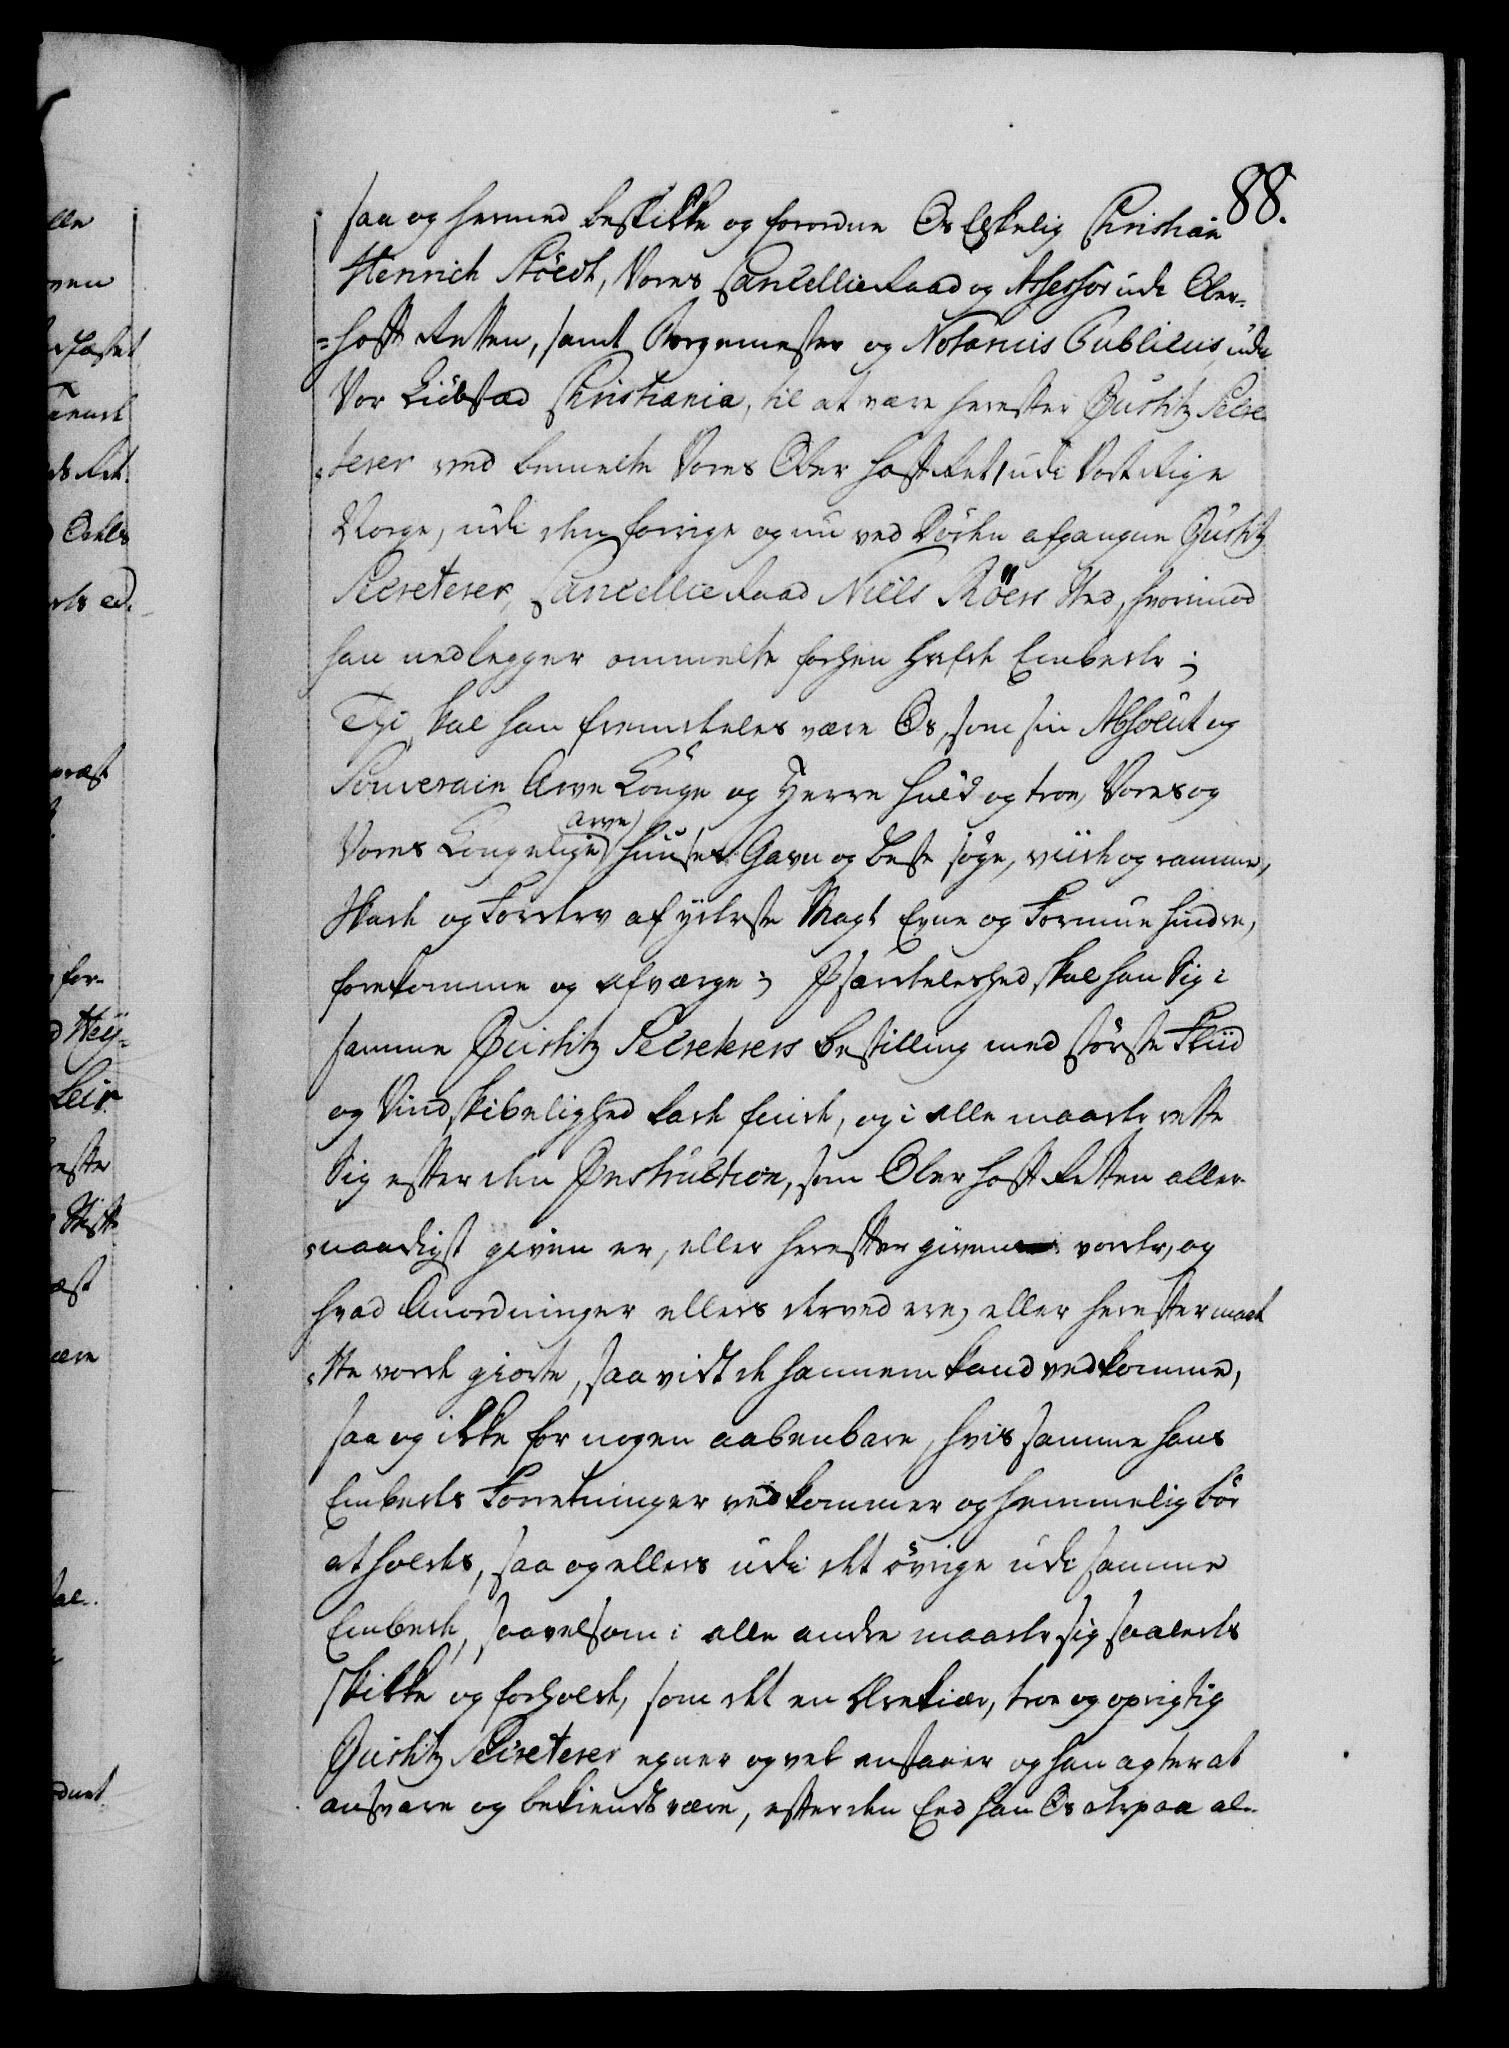 88.
saa og hermed beskikke og forordne Os Elskelig Christian
Henrich Stöedt, Vores Cancellie Raad og Assessor udi Ober-
=hoff Retten, samt Borgemester og Notarius Publicus udi
Vor Kiöbstæd Christiania, til at være herefter Justitz Secre-
terer ved bemelte Vores Ober Hoff Ret udi Vort Rige
Norge, udi den forrige og nu ved Döden afgangne Justitz
Secreterer, Cancellie Raad Niels Röers Sted, hvorimod
han nedlegger ommelte forhen hafde Embede;
Thi skal han fremdeeles være Os, som sin Absolut og
Souverain Arve Konge og Herre huld og troe, Vores og
Vores Kongelige arve Huuses Gavn og beste söge, viide og ramme,
Skade og Forderv af yderste Magt Evne og Formue hindre,
forekomme og afværge; Jsærdeleshed skal han Sig i
samme Justitz Secreterers bestilling med störste Fliid
og Vindskibelighed lade finde, og i alle maader rette
Sig efter den Instruction, som Ober Hoff Retten aller-
naadigst given er, eller herefter given vorder, og
hvad Anordninger ellers derved ere, eller herefter maat
-te vorde giorte, saa vidt de hannem kand vedkomme,
saa og ikke for nogen aabenbare, hvis samme hans
Embeds Forretninger vedkommer og hemmelig bör
at holdes, saa og ellers udi det övrige udi samme
Embede, saavelsom i alle andre maader sig saaledes
skikke og forholde, som det en Ærekiær, troe og oprigtig
Justitz Secreterer egner og vel anstaaer og han agter at
ansvare og bekiendt være, efter den Eed han Os derpaa al-